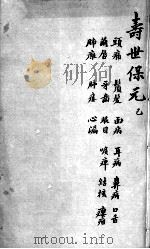 壽世保元 己
頭痛 鬚髮 面病 耳病 鼻病 口舌
齒病 牙齒 眼目 喉痺 結核 瘿瘤
肺癰 肝疽 心漏